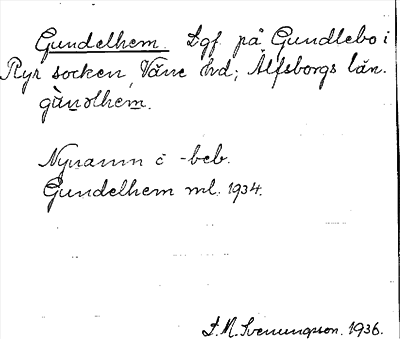 Gundelhem. Lgf. på Gundlebo i
Ryr socken, Väne hd; Älfsborgs län.
gùnꝺlhem.
Nynamn o -beb.
Gundelhem ml. 1934.
F. M. Svenungsson. 1936.